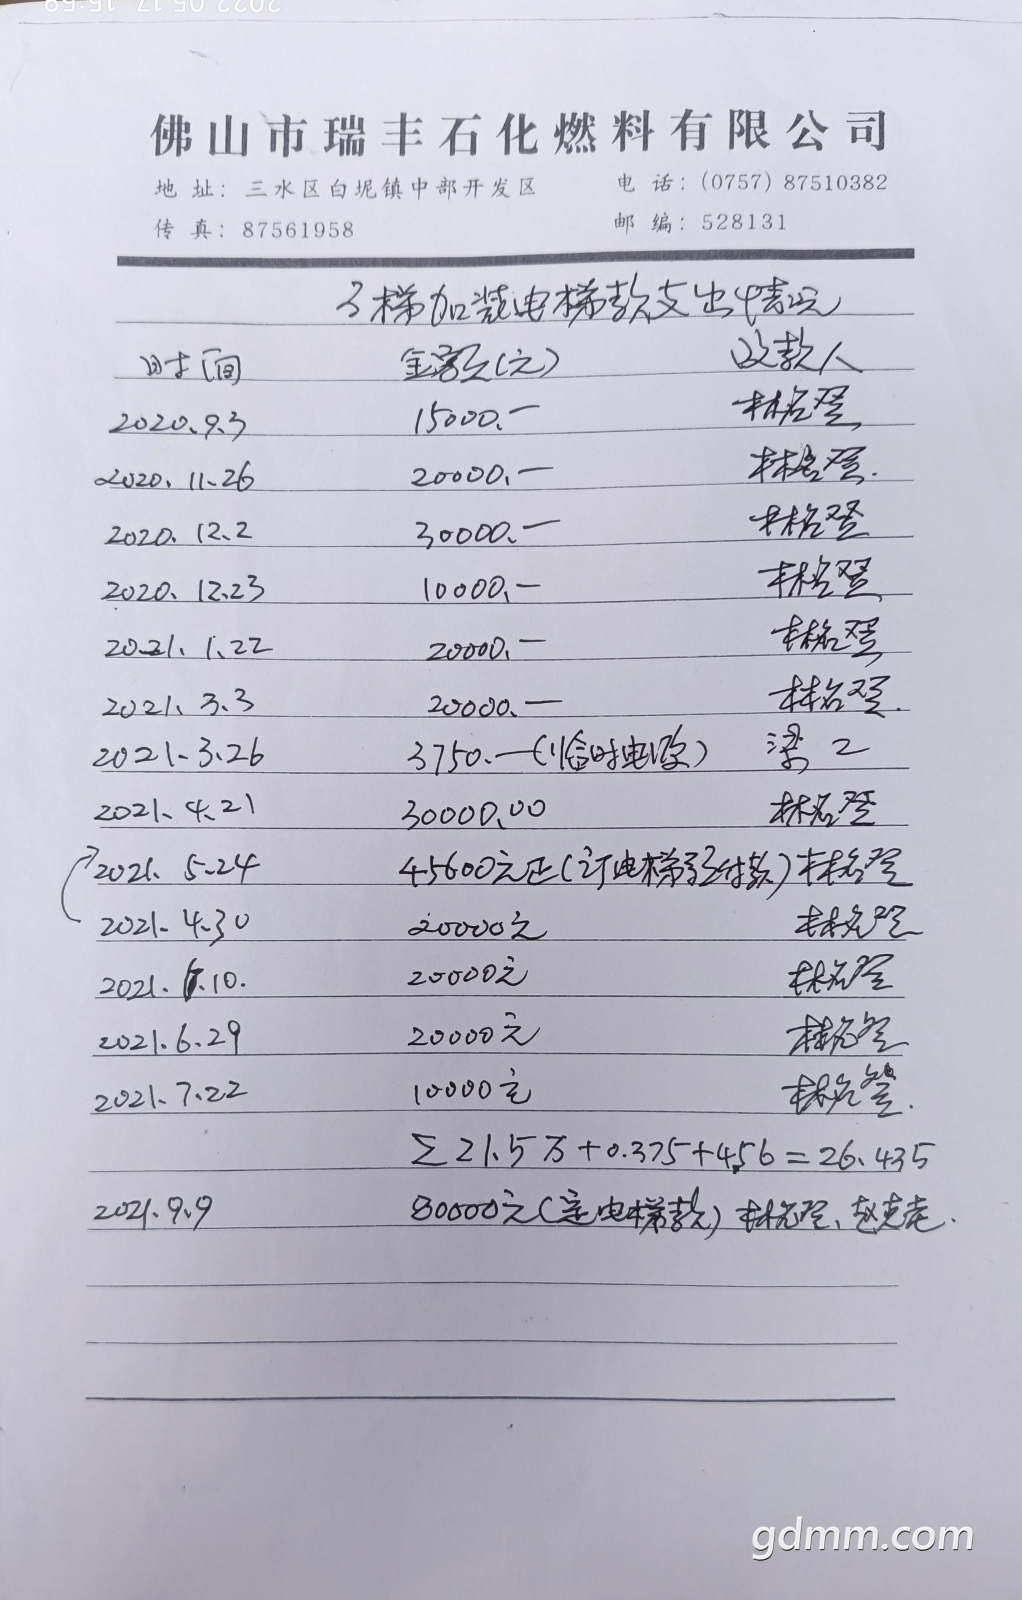 2022.05.17 15:59
佛山市瑞丰石化燃料有限公司
地 址：三水区白坭镇中部开发区 电 话：(0757) 87510382
传 真：87561958 邮 编：528131
3梯加装电梯款支出情况
时间 金额(元) 收款人
2020.9.3 15000.— 林铭登
2020.11.26 20000.— 林铭登.
2020.12.2 30000.— 林铭登
2020.12.23 10000.— 林铭登
2021.1.22 20000.— 林铭登
2021.3.3 20000.— 林铭登.
2021.3.26 3750.—(临时电源) 梁工
2021.4.21 30000.00 林铭登
2021.5.24 45600元正(订电梯预付款) 林铭登
2021.4.30 20000元 林铭登
2021.6.10. 20000元 林铭登
2021.6.29 20000元 林铭登
2021.7.22 10000元 林铭登.
∑21.5万+0.375+4.56=26.435
2021.9.9 80000元(定电梯款) 林铭登、赵
gdmm.com